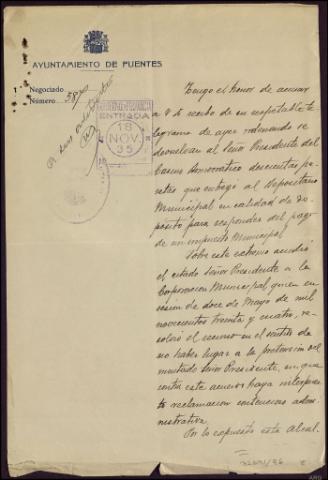 AYUNTAMIENTO DE PUENTES
Negociado
Número
ENTRADA
18
NOV
35
Tengo el honor de acusar
a V. S. recibo de su respetable te-
legrama de ayer ordenando se
devuelvan al Señor Presidente del
Casino Democrático descuentas pe-
setas que entregó al Depositario
Municipal en calidad de de-
pósito para responder del pago
de un impuesto Municipal.
Sobre este extremo acudió
el citado Señor Presidente a la
Corporación Municipal quien en
sesión de doce de Mayo de mil
novecientos treinta y cuatro, re-
solvió el recurso en el sentido de
no haber lugar a la pretensión del
mentado Señor Presidente, sin que
contra este acuerdo haya interpues-
to reclamación contencioso admi-
nistrativa.
Por lo expuesto esta Alcal-